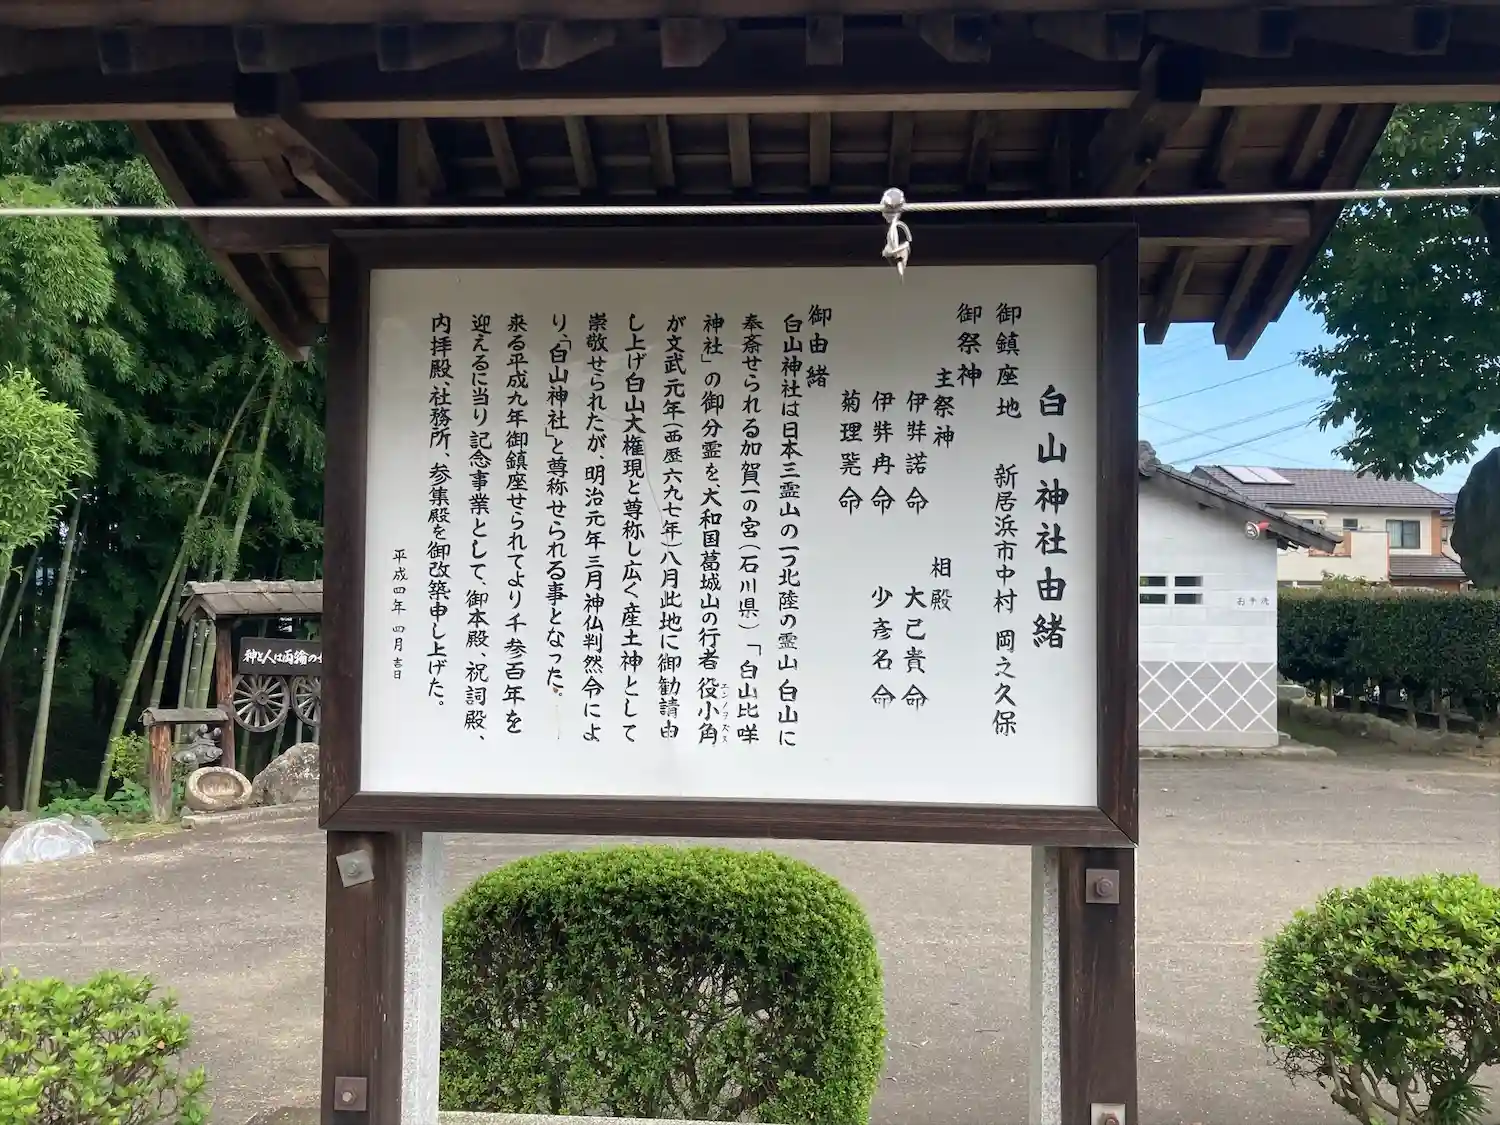 白山神社由緒
御鎮座地　新居浜市中村　岡之久保
御祭神
主祭神　相殿
伊弉諾命　大己貴命
伊弉冉命　少彦名命
菊理㐮命
御由緒
白山神社は日本三霊山の一つ北陸の霊山　白山に
奉斎せられる加賀一の宮(石川県)「白山比咩
神社」の御分霊を、大和国葛城山の行者　役小角
エンノヲズヌ
が文武元年(西歴六九七年)八月此地に御勧請由
し上げ白山大権現と尊称し広く産土神として
崇敬せられたが、明治元年三月神仏判然令によ
り、「白山神社」と尊称せられる事となった。
来る平成九年御鎮座せられてより千参百年を
迎えるに当り記念事業として、御本殿、祝詞殿、
内拝殿、社務所、参集殿を御改築申し上げた。
平成四年　四月　吉日
神と人は両輪の
お手洗